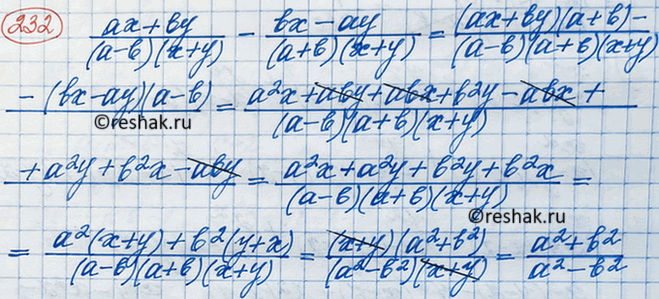 232 (ax+by)/((a-b)(x+y)) - (bx-ay)/((a+b)(x+y)) = ((ax+by)(a+b)-)/((a-b)(a+b)(x+y))
(-(bx-ay)(a-b))/ = (a²x+aby+abx+b²y-abx+)/((a-b)(a+b)(x+y))
©reshak.ru
(+a²y+b²x-aby)/ = (a²x+a²y+b²y+b²x)/((a-b)(a+b)(x+y)) =
©reshak.ru
= (a²(x+y)+b²(y+x))/((a-b)(a+b)(x+y)) = ((x+y)(a²+b²))/((a²-b²)(x+y)) = (a²+b²)/(a²-b²)